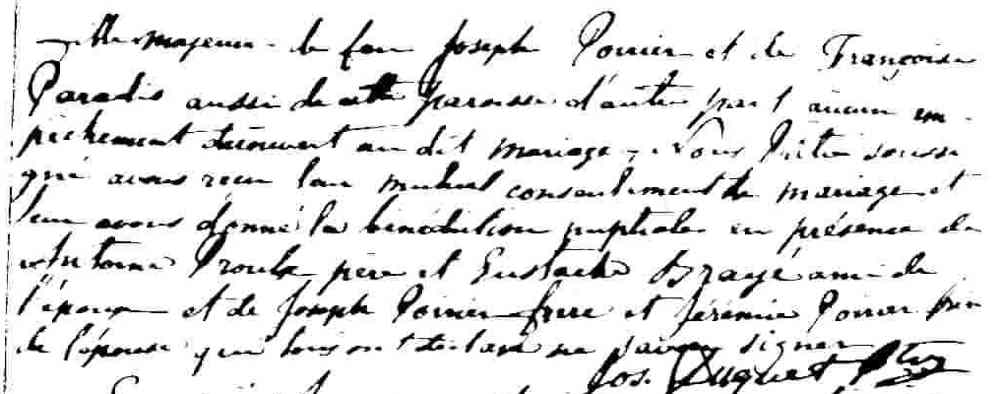 fille majeure de feu Joseph Poirier et de Françoise
Paradis aussi de cette paroisse d'autre part aucun em-
pêchement découvert au dit mariage, Nous Prêtre soussi
gné avons reçu leur mutuel consentement de mariage et
leur avons donné la bénédiction nuptiale en présence de
Antoine Proulx père et Eustache Brayé ami de
l'époux et de Joseph Poirier frère et Jérémie Poirier
de l'épouse qui tous ont déclaré ne savoir signer
Jos. Duquet Ptre